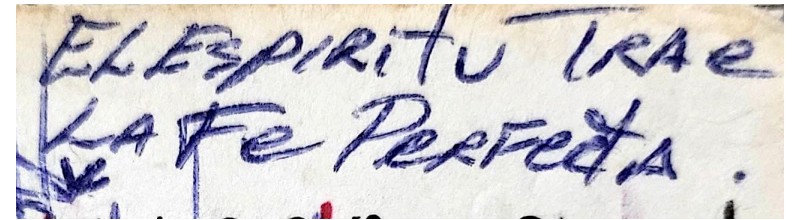 EL ESPIRITU TRAE
LA Fe PERFECTA.